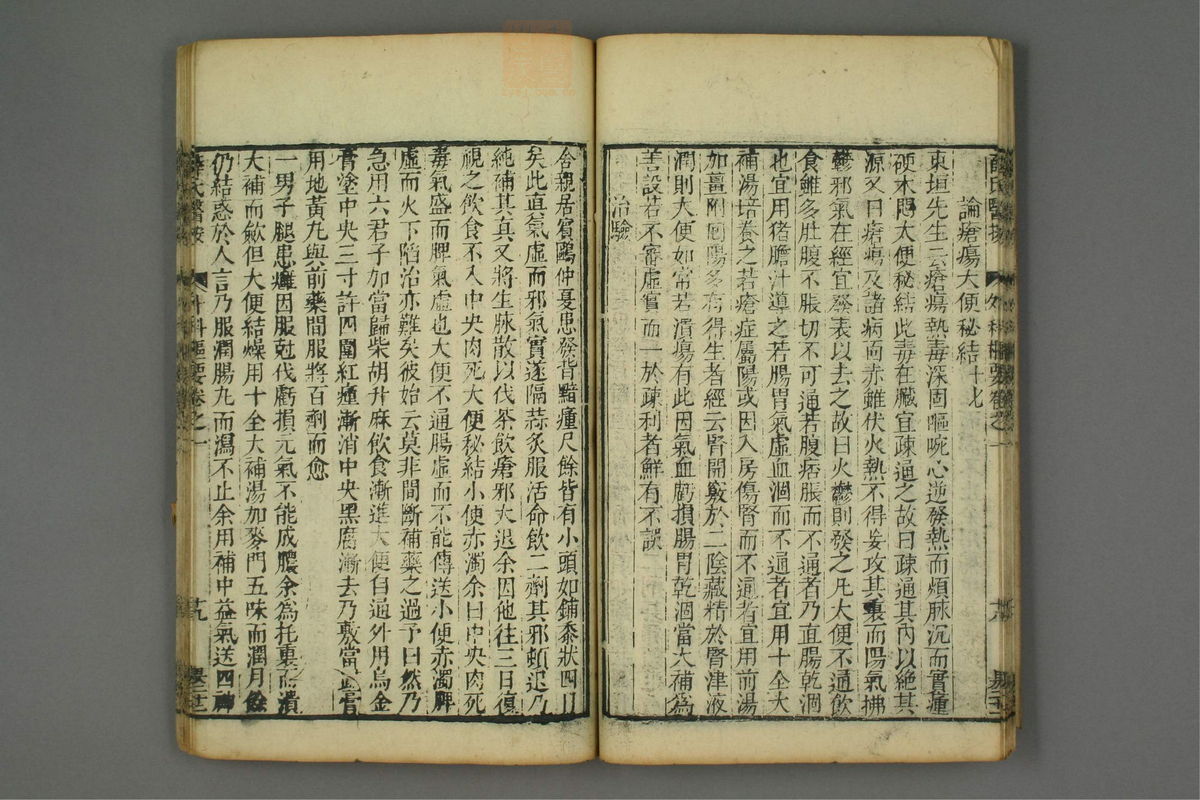 論瘡瘍大便秘結十七
東垣先生云瘡瘍熱毒深固嘔啘心逆發熱而煩脉沉而實腫
硬木悶大便秘結此毒在臟宜疎通之故曰疎通其內以絕其
源又曰瘡瘍及諸病面赤雖伏火熱不得妄攻其裏而陽氣拂
鬱邪氣在經宜發表以去之故曰火鬱則發之凡大便不通飲
食雖多肚腹不脹切不可通若腹痞脹而不通者乃直腸乾涸
也宜用猪膽汁導之若腸胃氣虛血涸而不通者宜用十全大
補湯培養之若瘡症屬陽或因入房傷腎而不通者宜用前湯
加薑附回陽多有得生者經云腎開竅於二陰藏精於腎津液
潤則大便如常若潰瘍有此因氣血虧損腸胃乾涸當大補為
善設若不審虛實而一於疎利者鮮有不誤
治驗
舍親居賓鷗仲夏患發背黯腫尺餘皆有小頭如鋪黍狀四日
矣此直氣虛而邪氣實遂隔蒜灸服活命飲二劑其邪頓退乃
純補其真又將生脉散以代茶飲瘡邪大退余因他往三日復
視之飲食不入中央肉死大便秘結小便赤濁余曰中央肉死
毒氣盛而脾氣虛也大便不通腸虛而不能傳送小便赤濁脾
虛而火下陷治亦難矣彼始云莫非間斷補藥之過予曰然乃
急用六君子加當歸柴胡升麻飲食漸進大便自通外用烏金
膏塗中央三寸許四圍紅腫漸消中央黑腐漸去乃敷當
用地黃丸與前藥間服將百劑而愈
一男子腿患癰因服尅伐虧損元氣不能成膿余為托裏而潰
大補而歛但大便結燥用十全大補湯加麥門五味而潤月餘
仍結惑於人言乃服潤腸丸而瀉不止余用補中益氣送四神
薛氏醫按
外科樞要卷之一